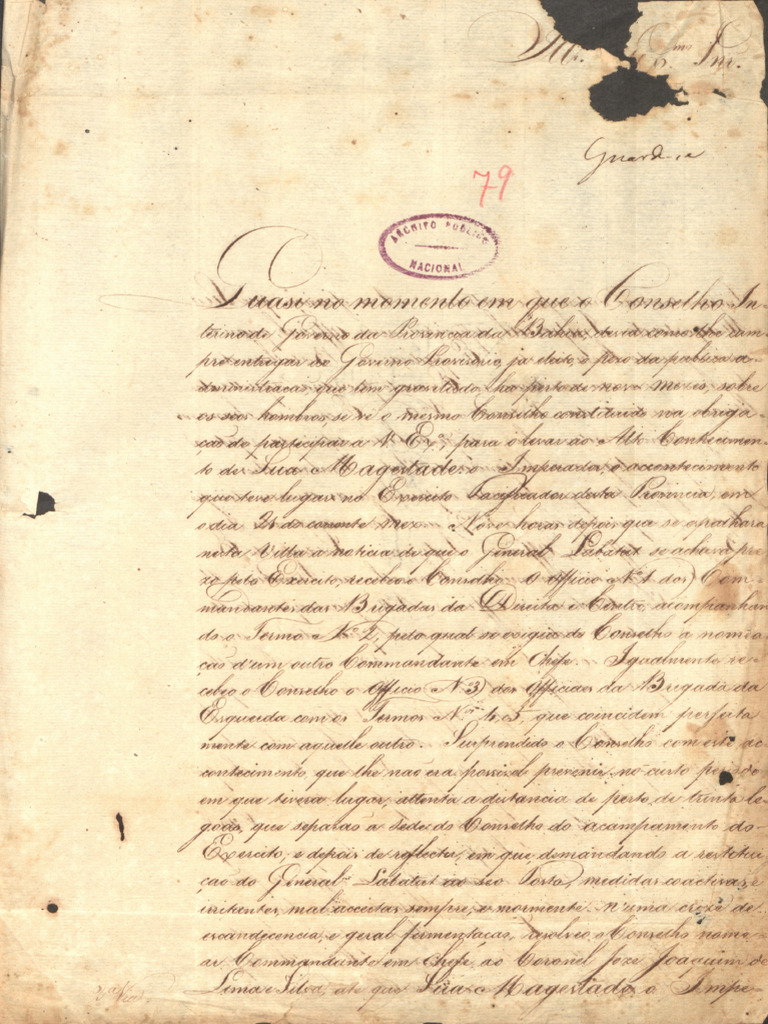 Ill. Ex.mo Snr.
Guarde-se
79
ARCHIVO PUBLICO
NACIONAL
Quasi no momento em que o Conselho In-
terino de Governo da Provincia da Bahia, devia como lhe cum-
pre entregar ao Governo Provisorio, já eleito, o pezo da publica a-
dministracaõ, que tem gravitado ha perto de nove mezes, sobre
os seos hombros, se vê o mesmo Conselho constituido na obriga-
çaõ de participar a V. Ex.ª, para o levar ao Alto Conhecimen-
to de Sua Magestade o Imperador, o acontecimento
que teve lugar no Exercito Pacificador desta Provincia, em
o dia 21 do corrente mez. Nove horas depois que se espalhara
nesta Villa a noticia de que o General Labatut se achava pre-
zo pelo Exercito, recebeo o Conselho o officio N.º 1 dos Com-
mandantes das Brigadas da Direita e Centro, acompanhan-
do o Termo N.º 2, pelo qual se exigia do Conselho a nomea-
çaõ d'um outro Commandante em Chefe. Igualmente re-
cebeo o Conselho o Officio N. 3 dos Officiaes da Brigada da
Esquerda com os Termos N.os 4, e 5, que coincidem perfeita
mente com aquelle outro. Surprendido o Conselho com este ac-
contecimento, que lhe naõ era possivel prevenir no curto periodo
em que tivera lugar, attenta a distancia de perto de trinta le-
goas, que separaõ a Sede do Conselho do acampamento do
Exercito, e depois de reflectir, em que demandando a restitui-
çaõ do General Labatut ao seo Posto, medidas coactivas, e
irritantes, mal acceitas sempre, e mormente n'uma crize de
escandecencia, e geral fermentaçaõ, resolveo o Conselho nome-
ar Commandante em Chefe, ao Coronel Joze Joaquim de
Lima e Silva, até que Sua Magestade o Impe-